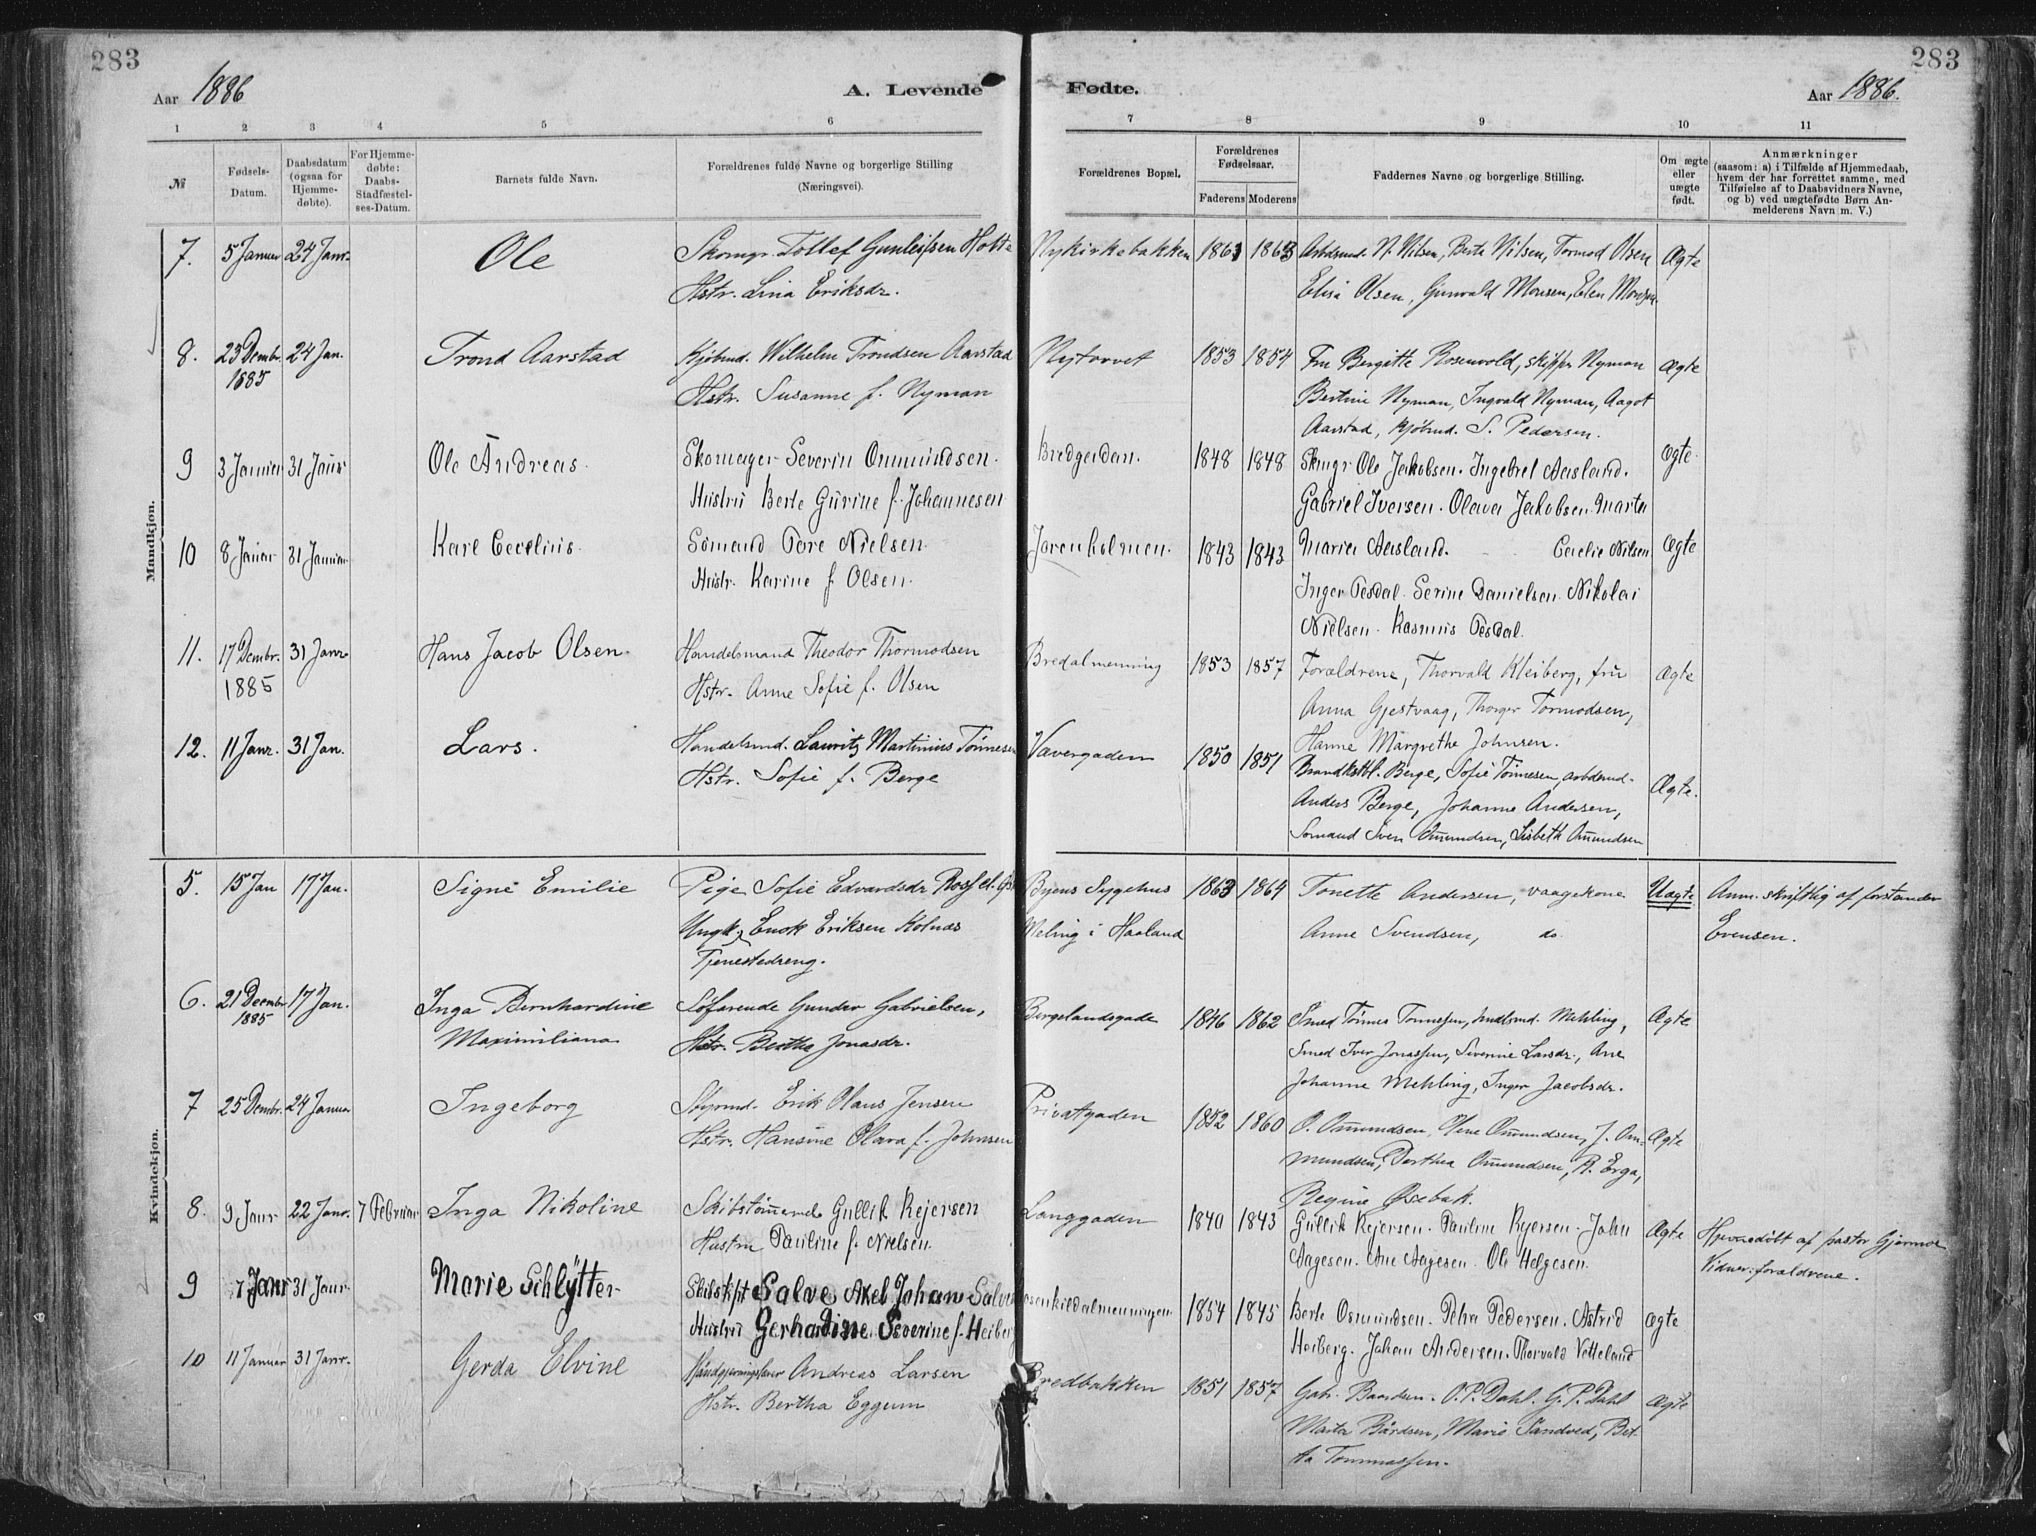 283
283
Aar 1886
A. Levende
Fødte.
Aar 1886.
1 2 3 4 5 6
7 8 9 10 11
№
Fødsels-
Datum.
Daabsdatum
(ogsaa for
Hjemme-
døbte).
For Hjemme-
døbte:
Daabs-
Stadfæstel-
ses-Datum.
Barnets fulde Navn.
Forældrenes fulde Navne og borgerlige Stilling
(Næringsvei).
Forældrenes Bopæl.
Forældrenes
Fødselsaar.
Faderens Moderens
Faddernes Navne og borgerlige Stilling.
Om ægte
eller
uægte
født.
Anmærkninger
(saasom: a) i Tilfælde af Hjemmedaab,
hvem der har forrettet samme, med
Tilføielse af to Daabsvidners Navne,
og b) ved uægtefødte Børn An-
melderens Navn m. V.)
Mandkjøn.
7. 5 Januar 24 Janr. Ole Skomgr. Tollef Gunleifsen Hotte Nykirkebakken 1861 1863 Arbdsmd. N. Nilsen, Berta Nilsen, Tormod Olsen Ægte
Hstr. Lina Eriksdr. Elisa Olsen, Gunvald Monsen, Elen Monsen
8. 23 Decmbr. 24 Jan. Trond Aarstad Kjøbmd. Wilhelm Trondsen Aarstad Nytorvet 1853 1854 Fru Bergitte Rosenvold, skipper Nyman Ægte
1885 Hstr. Susanne f. Nyman Bertine Nyman, Ingvald Nyman, Aagot
Aarstad, Kjøbmd. S. Pedersen.
9 3 Januar 31 Janr Ole Andreas. Skomager Severin Ommundsen. Bredgadan. 1848 1848 Skmgr Ole Jakobsen. Ingebret Aasland. Ægte.
Hustru Berte Gurine f. Johannesen Gabriel Iversen. Olava Jakobsen. Marta
10 8 Januar 31 Januar Karl Cecelius. Sømand Tore Nielsen. Jorenholmen. 1843 1843 Maria Aasland. Cecelie Nilsen Ægte
Hustr. Karine f Olsen. Inger Tesdal. Serine Danielsen. Nikolai
Nielsen. Rasmus Tesdal.
11. 17 Decmbr. 31 Janr Hans Jacob Olsen. Handelsmand Theodor Thormodsen Bredalmenning 1853 1857 Forældrene, Thorvald Kleiberg, fru Ægte
1885 Hstr. Anne Sofie f. Olsen Anna Gjestvaag, Thorger Tormodsen,
Hanne Margrethe Johnsen.
12. 11 Janr. 31 Jan. Lars. Handelsmd. Lauritz Martinius Tønnesen Vævergaden 1850 1851 Brandkstbl. Berge, Sofie Tønnesen, arbdsmd. Ægte.
Hstr. Sofie f. Berge Anders Berge, Johanne Andersen,
Sømand Sven Ommundsen, Lisbeth Ommundsen
Kvindekjøn.
5. 15 Jan 17 Jan. Signe Emilie Pige Sofie Edvardsdr. Byens Sygehus 1863 1864 Tonette Andersen, vaagekone Uægte Anm. skriftlig af forstander
Ungk. Enok Eriksen Kolnæs Meling i Haaland Anne Svendsen, do. Evensen.
Tjenestedreng.
6. 21 Decmbr 17 Jan. Inga Bernhardine Søfarende Gunder Gabrielsen, Bergelandsgade 1846 1862 Smed Tønnes Tønnessen, hndlsmd. Mehling, Ægte
1885 Maximiliana Hstr. Berthe Jonasdr. Smed Iver Jonassen, Severine Larsdr., Ane
Johanne Mehling, Inger Jacobsdr.
7 25 Decmbr. 24 Januar Ingeborg Styrmd. Erik Olaus Jensen Privatgaden 1852 1860 O. Ommundsen, Ommundsen, J. Om- Ægte
Hstr. Hansine Olava f. Johnsen mundsen, Dorthea Ommundsen, R. Erga,
Regine Øsebak.
8. 9 Janr 22 Janr. 7 Februar Inga Nikoline Skibstømmrmd. Gullik Rejersen Langgaden 1840 1843 Gullik Rejersen. Pauline Ryersen. John Ægte Hjemmedøbt af pastor Gjermoe
Hustru Pauline f. Nielsen. Aagesen. Ane Aagesen. Ole Helgesen. Vidner: forældrene.
9 7 Janr 31 Janr Marie Schlytter Skibskpt Salve Axel Johan Salve 1854 1845 Berte Osmundsen. Petra Pedersen. Astrid Ægte
Hustru Gerhardine Severine f. Heiberg Heiberg. Johan Andersen. Thorvald Vetteland
10 11 Januar 31 Janr. Gerda Elvine Andreas Larsen Bredbakken 1851 1857 Gab. Baardsen. O. P. Dahl. G. P. Dahl Ægte
Hstr. Bertha Eggum Marta Bårdsen, Marie Sandved, Bet-
ta Tommassen.